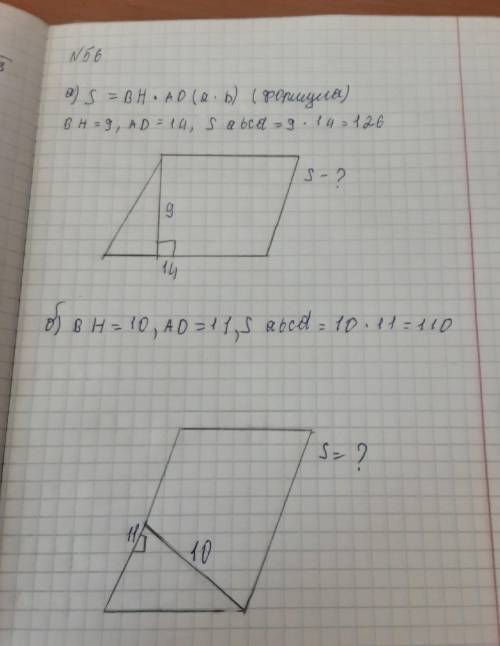 N56
а) S = BH · AD (a · b) (формула)
BH = 9, AD = 14, S abcd = 9 · 14 = 126
S - ?
9
14
б) BH = 10, AD = 11, S abcd = 10 · 11 = 110
S = ?
11
10